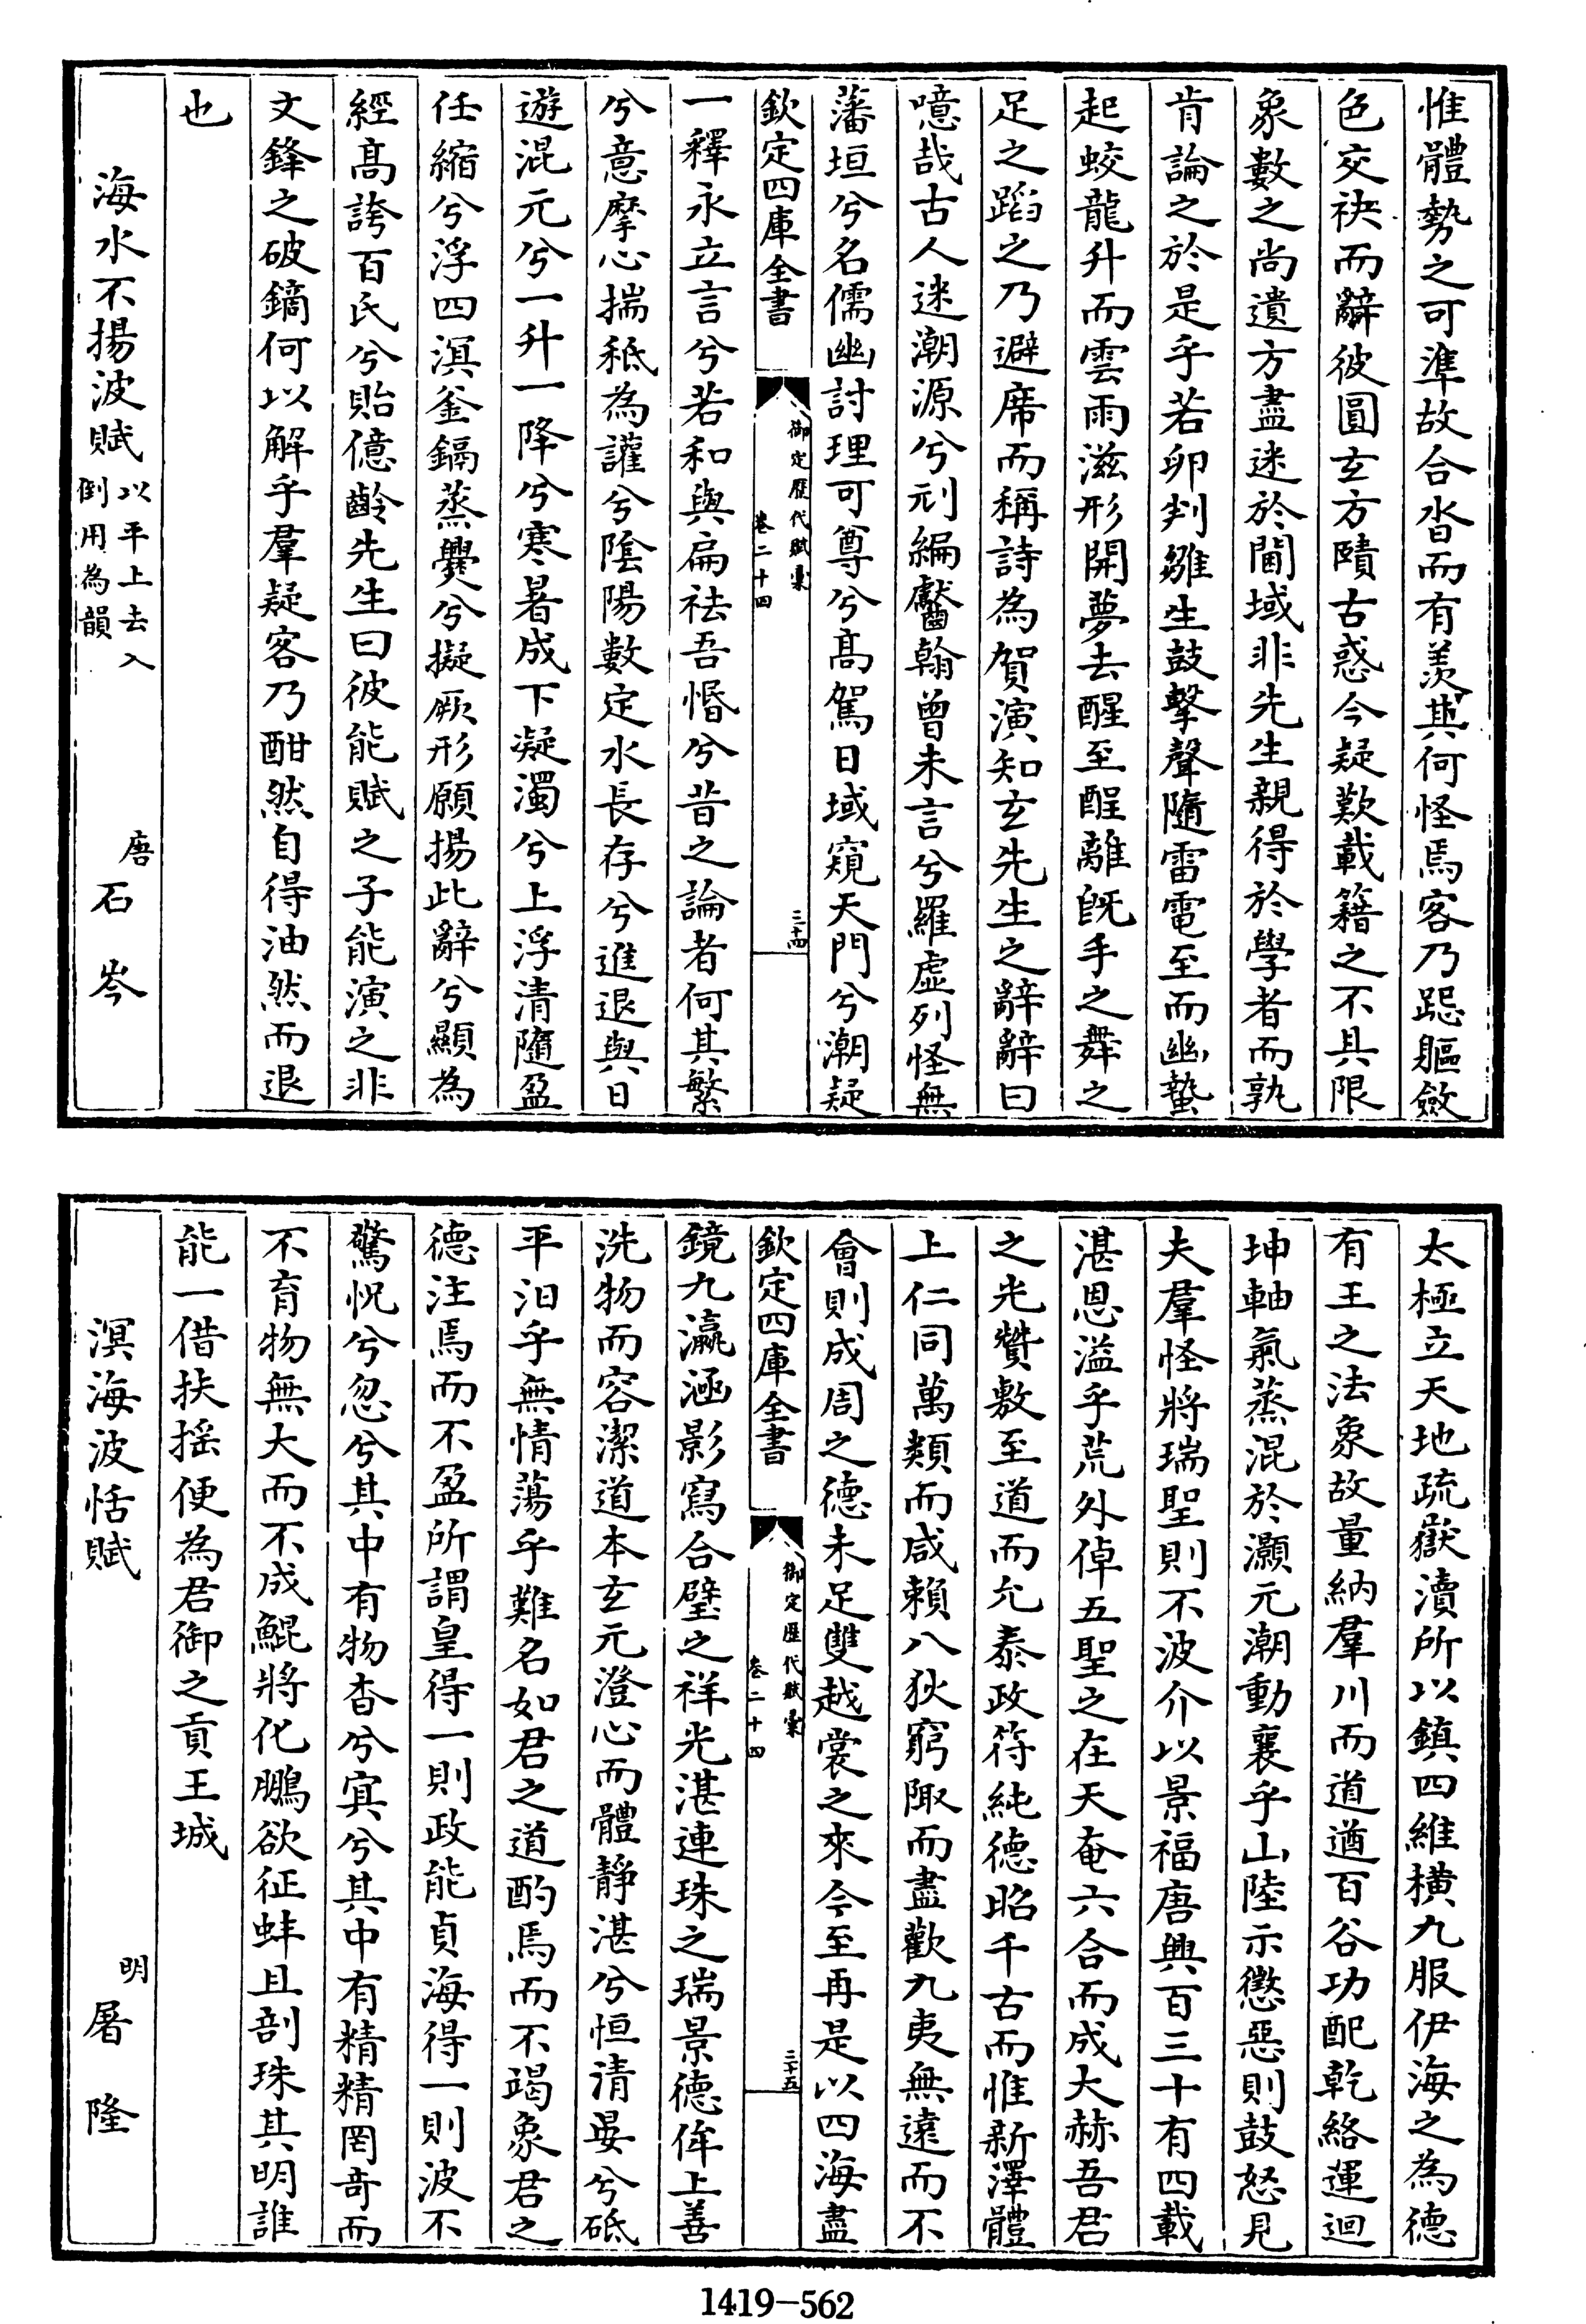 惟體勢之可準故合沓而有羨其何怪焉客乃跽軀斂
色交袂而辭彼圓玄方賾古惑今疑歎載籍之不具限
象數之尚遺方盡迷於閫域非先生親得於學者而孰
肯論之於是乎若卵判雛生鼓擊聲隨雷電至而幽蟄
起蛟龍升而雲雨滋形開夢去醒至酲離既手之舞之
足之蹈之乃避席而稱詩為賀演知玄先生之辭辭曰
噫哉古人迷潮源兮刓編齾翰曾未言兮羅虛列怪無
藩垣兮名儒幽討理可尊兮高駕日域窺天門兮潮疑
欽定四庫全書
御定歷代賦彙
卷二十四
三十四
一釋永立言兮若和與扁祛吾惛兮昔之論者何其繁
兮意摩心揣秖為讙兮陰陽數定水長存兮進退與日
遊混元兮一升一降兮寒暑成下凝濁兮上浮清隨盈
任縮兮浮四溟釜鬲蒸爨兮擬厥形願揚此辭兮顯為
經高誇百氏兮貽億齡先生曰彼能賦之子能演之非
文鋒之破鏑何以解乎羣疑客乃酣然自得油然而退
也
海水不揚波賦 以平上去入
倒用為韻
唐 石岑
太極立天地疏嶽瀆所以鎮四維橫九服伊海之為德
有王之法象故量納羣川而道遒百谷功配乾絡運迴
坤軸氣蒸混於灝元潮動襄乎山陸示懲惡則鼓怒見
夫羣怪將瑞聖則不波介以景福唐興百三十有四載
湛恩溢乎荒外倬五聖之在天奄六合而成大赫吾君
之光贊敷至道而允泰政符純德昭千古而惟新澤體
上仁同萬類而咸賴八狄窮陬而盡歡九夷無遠而不
會則成周之德未足雙越裳之來今至再是以四海盡
欽定四庫全書
御定歷代賦彙
卷二十四
三十五
鏡九瀛涵影寫合璧之祥光湛連珠之瑞景德侔上善
洗物而容潔道本玄元澄心而體靜湛兮恒清晏兮砥
平汨乎無情蕩乎難名如君之道酌焉而不竭象君之
德注焉而不盈所謂皇得一則政能貞海得一則波不
驚怳兮忽兮其中有物杳兮冥兮其中有精精罔奇而
不育物無大而不成鯤將化鵬欲征蚌且剖珠其明誰
能一借扶搖便為君御之貢王城
溟海波恬賦
明 屠隆
1419-562